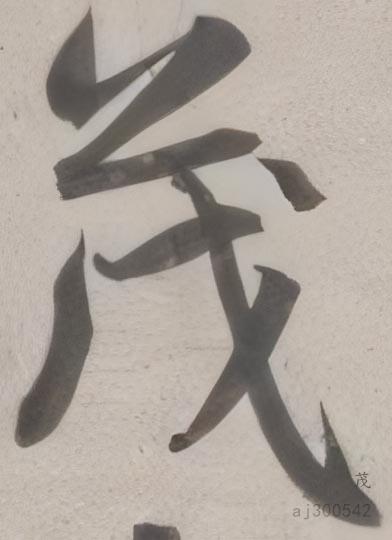 茂
茂
aj300542